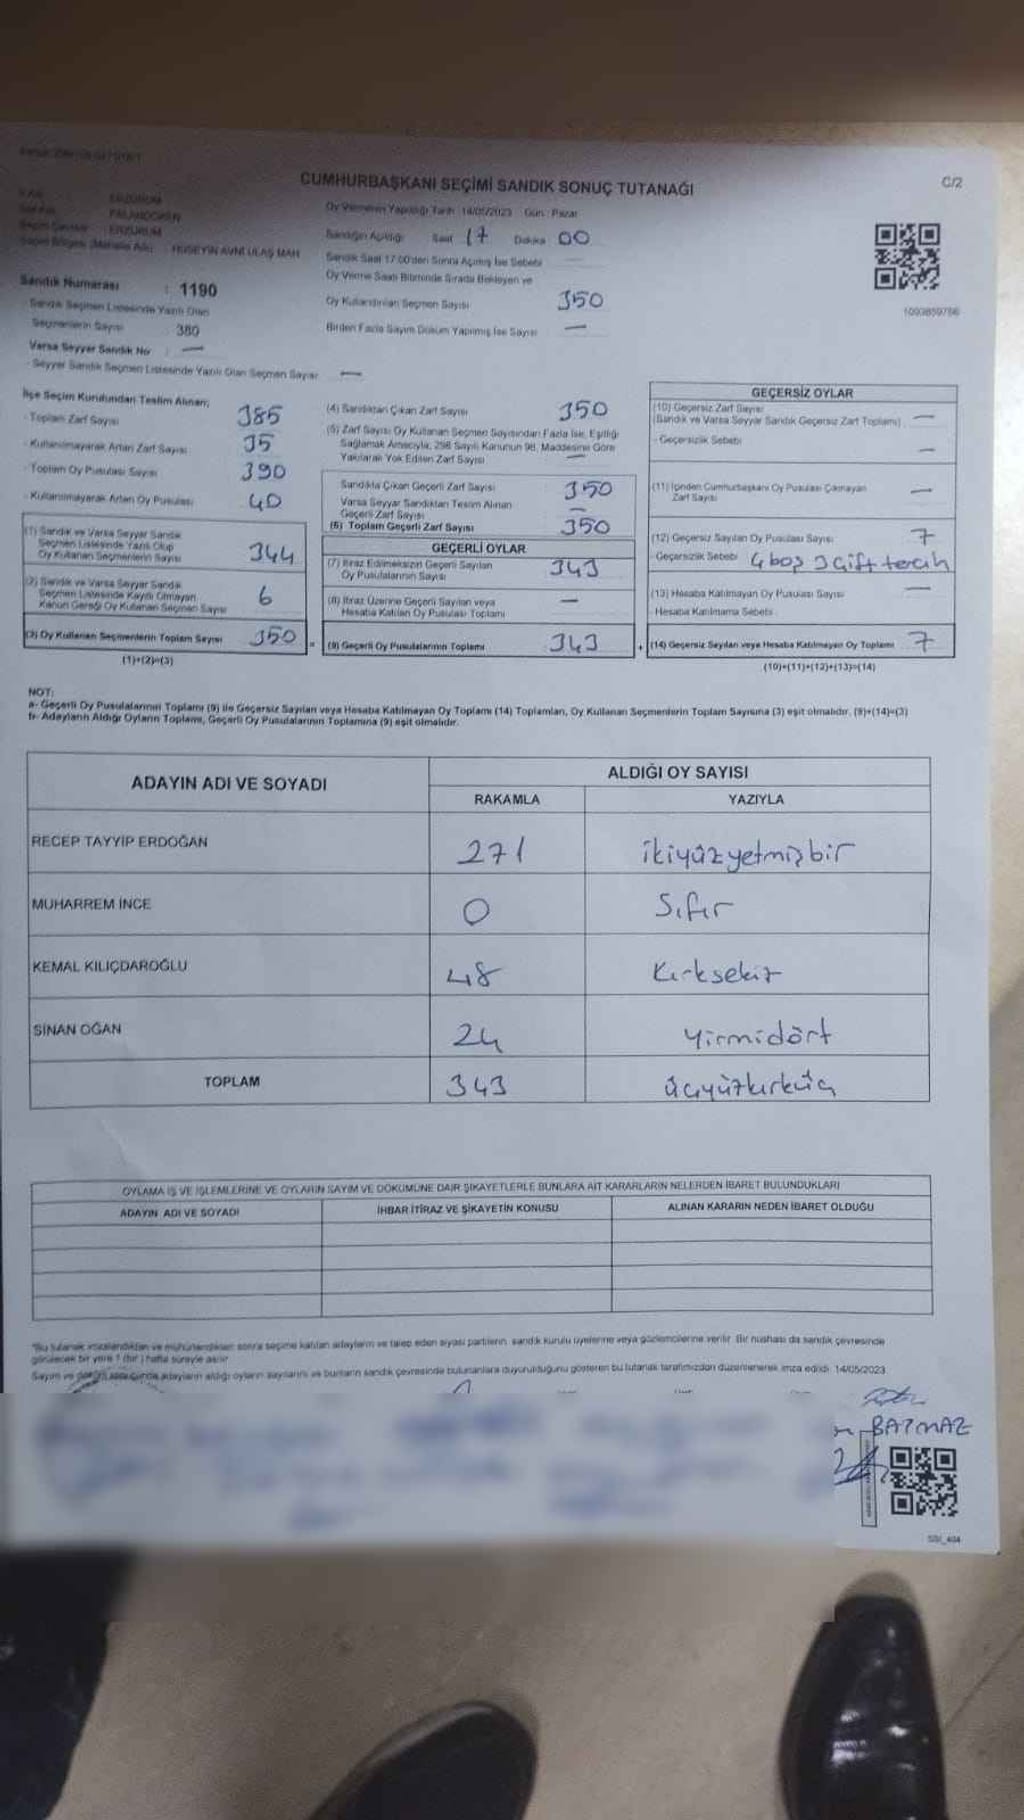 CUMHURBAŞKANI SEÇİMİ SANDIK SONUÇ TUTANAĞI
C/2
ERZURUM
PALANDÖKEN
ERZURUM
HÜSEYİN AVNİ ULAŞ MAH
Oy Vermenin Yapıldığı Tarih : 14/05/2023 Gün : Pazar
Sandığın Açıldığı Saat 17 Dakika 00
Sandık Saat 17.00'den Sonra Açılmış İse Sebebi —
Oy Verme Saati Bitiminde Sırada Bekleyen ve
Oy Kullandırılan Seçmen Sayısı 350
Birden Fazla Sayım Döküm Yapılmış İse Sayısı —
1093859766
Sandık Numarası : 1190
Sandık Seçmen Listesinde Yazılı Olan
Seçmenlerin Sayısı 380
Varsa Seyyar Sandık No : —
Seyyar Sandık Seçmen Listesinde Yazılı Olan Seçmen Sayısı —
İlçe Seçim Kurulundan Teslim Alınan;
- Toplam Zarf Sayısı 385
- Kullanılmayarak Artan Zarf Sayısı 35
- Toplam Oy Pusulası Sayısı 390
- Kullanılmayarak Artan Oy Pusulası 40
(1) Sandık ve Varsa Seyyar Sandık
Seçmen Listesinde Yazılı Olup
Oy Kullanan Seçmenlerin Sayısı 344
(2) Sandık ve Varsa Seyyar Sandık
Seçmen Listesinde Kayıtlı Olmayan
Kanun Gereği Oy Kullanan Seçmen Sayısı 6
(3) Oy Kullanan Seçmenlerin Toplam Sayısı 350
(1)+(2)=(3)
(4) Sandıktan Çıkan Zarf Sayısı 350
(5) Zarf Sayısı Oy Kullanan Seçmen Sayısından Fazla İse, Eşitliği
Sağlamak Amacıyla, 298 Sayılı Kanunun 98. Maddesine Göre
Yakılarak Yok Edilen Zarf Sayısı —
Sandıkta Çıkan Geçerli Zarf Sayısı 350
Varsa Seyyar Sandıktan Teslim Alınan
Geçerli Zarf Sayısı —
(6) Toplam Geçerli Zarf Sayısı 350
GEÇERLİ OYLAR
(7) İtiraz Edilmeksizin Geçerli Sayılan
Oy Pusulalarının Sayısı 343
(8) İtiraz Üzerine Geçerli Sayılan veya
Hesaba Katılan Oy Pusulası Toplamı —
= (9) Geçerli Oy Pusulalarının Toplamı 343
GEÇERSİZ OYLAR
(10) Geçersiz Zarf Sayısı
(Sandık ve Varsa Seyyar Sandık Geçersiz Zarf Toplamı) —
- Geçersizlik Sebebi —
(11) İçinden Cumhurbaşkanı Oy Pusulası Çıkmayan
Zarf Sayısı —
(12) Geçersiz Sayılan Oy Pusulası Sayısı 7
- Geçersizlik Sebebi 4 boş 3 çift tercih
(13) Hesaba Katılmayan Oy Pusulası Sayısı —
- Hesaba Katılmama Sebebi
+ (14) Geçersiz Sayılan veya Hesaba Katılmayan Oy Toplamı 7
(10)+(11)+(12)+(13)=(14)
NOT:
a- Geçerli Oy Pusulalarının Toplamı (9) ile Geçersiz Sayılan veya Hesaba Katılmayan Oy Toplamı (14) Toplamları, Oy Kullanan Seçmenlerin Toplam Sayısına (3) eşit olmalıdır. (9)+(14)=(3)
b- Adayların Aldığı Oyların Toplamı, Geçerli Oy Pusulalarının Toplamına (9) eşit olmalıdır.
ADAYIN ADI VE SOYADI
ALDIĞI OY SAYISI
RAKAMLA YAZIYLA
RECEP TAYYİP ERDOĞAN 271 ikiyüzyetmişbir
MUHARREM İNCE 0 Sıfır
KEMAL KILIÇDAROĞLU 48 Kırksekiz
SİNAN OĞAN 24 Yirmidört
TOPLAM 343 üçyüzkırküç
OYLAMA İŞ VE İŞLEMLERİNE VE OYLARIN SAYIM VE DÖKÜMÜNE DAİR ŞİKAYETLERLE BUNLARA AİT KARARLARIN NELERDEN İBARET BULUNDUKLARI
ADAYIN ADI VE SOYADI İHBAR İTİRAZ VE ŞİKAYETİN KONUSU ALINAN KARARIN NEDEN İBARET OLDUĞU
*Bu tutanak imzalandıktan ve mühürlendikten sonra seçime katılan adayların ve talep eden siyasi partilerin, sandık kurulu üyelerine veya gözlemcilerine verilir. Bir nüshası da sandık çevresinde
görülecek bir yere 1 (bir) hafta süreyle asılır.
Sayım ve adayların aldığı oyların sayılarını ve bunların sandık çevresinde bulunanlara duyurulduğunu gösteren bu tutanak tarafımızdan düzenlenerek imza edildi. 14/05/2023
BATMAZ